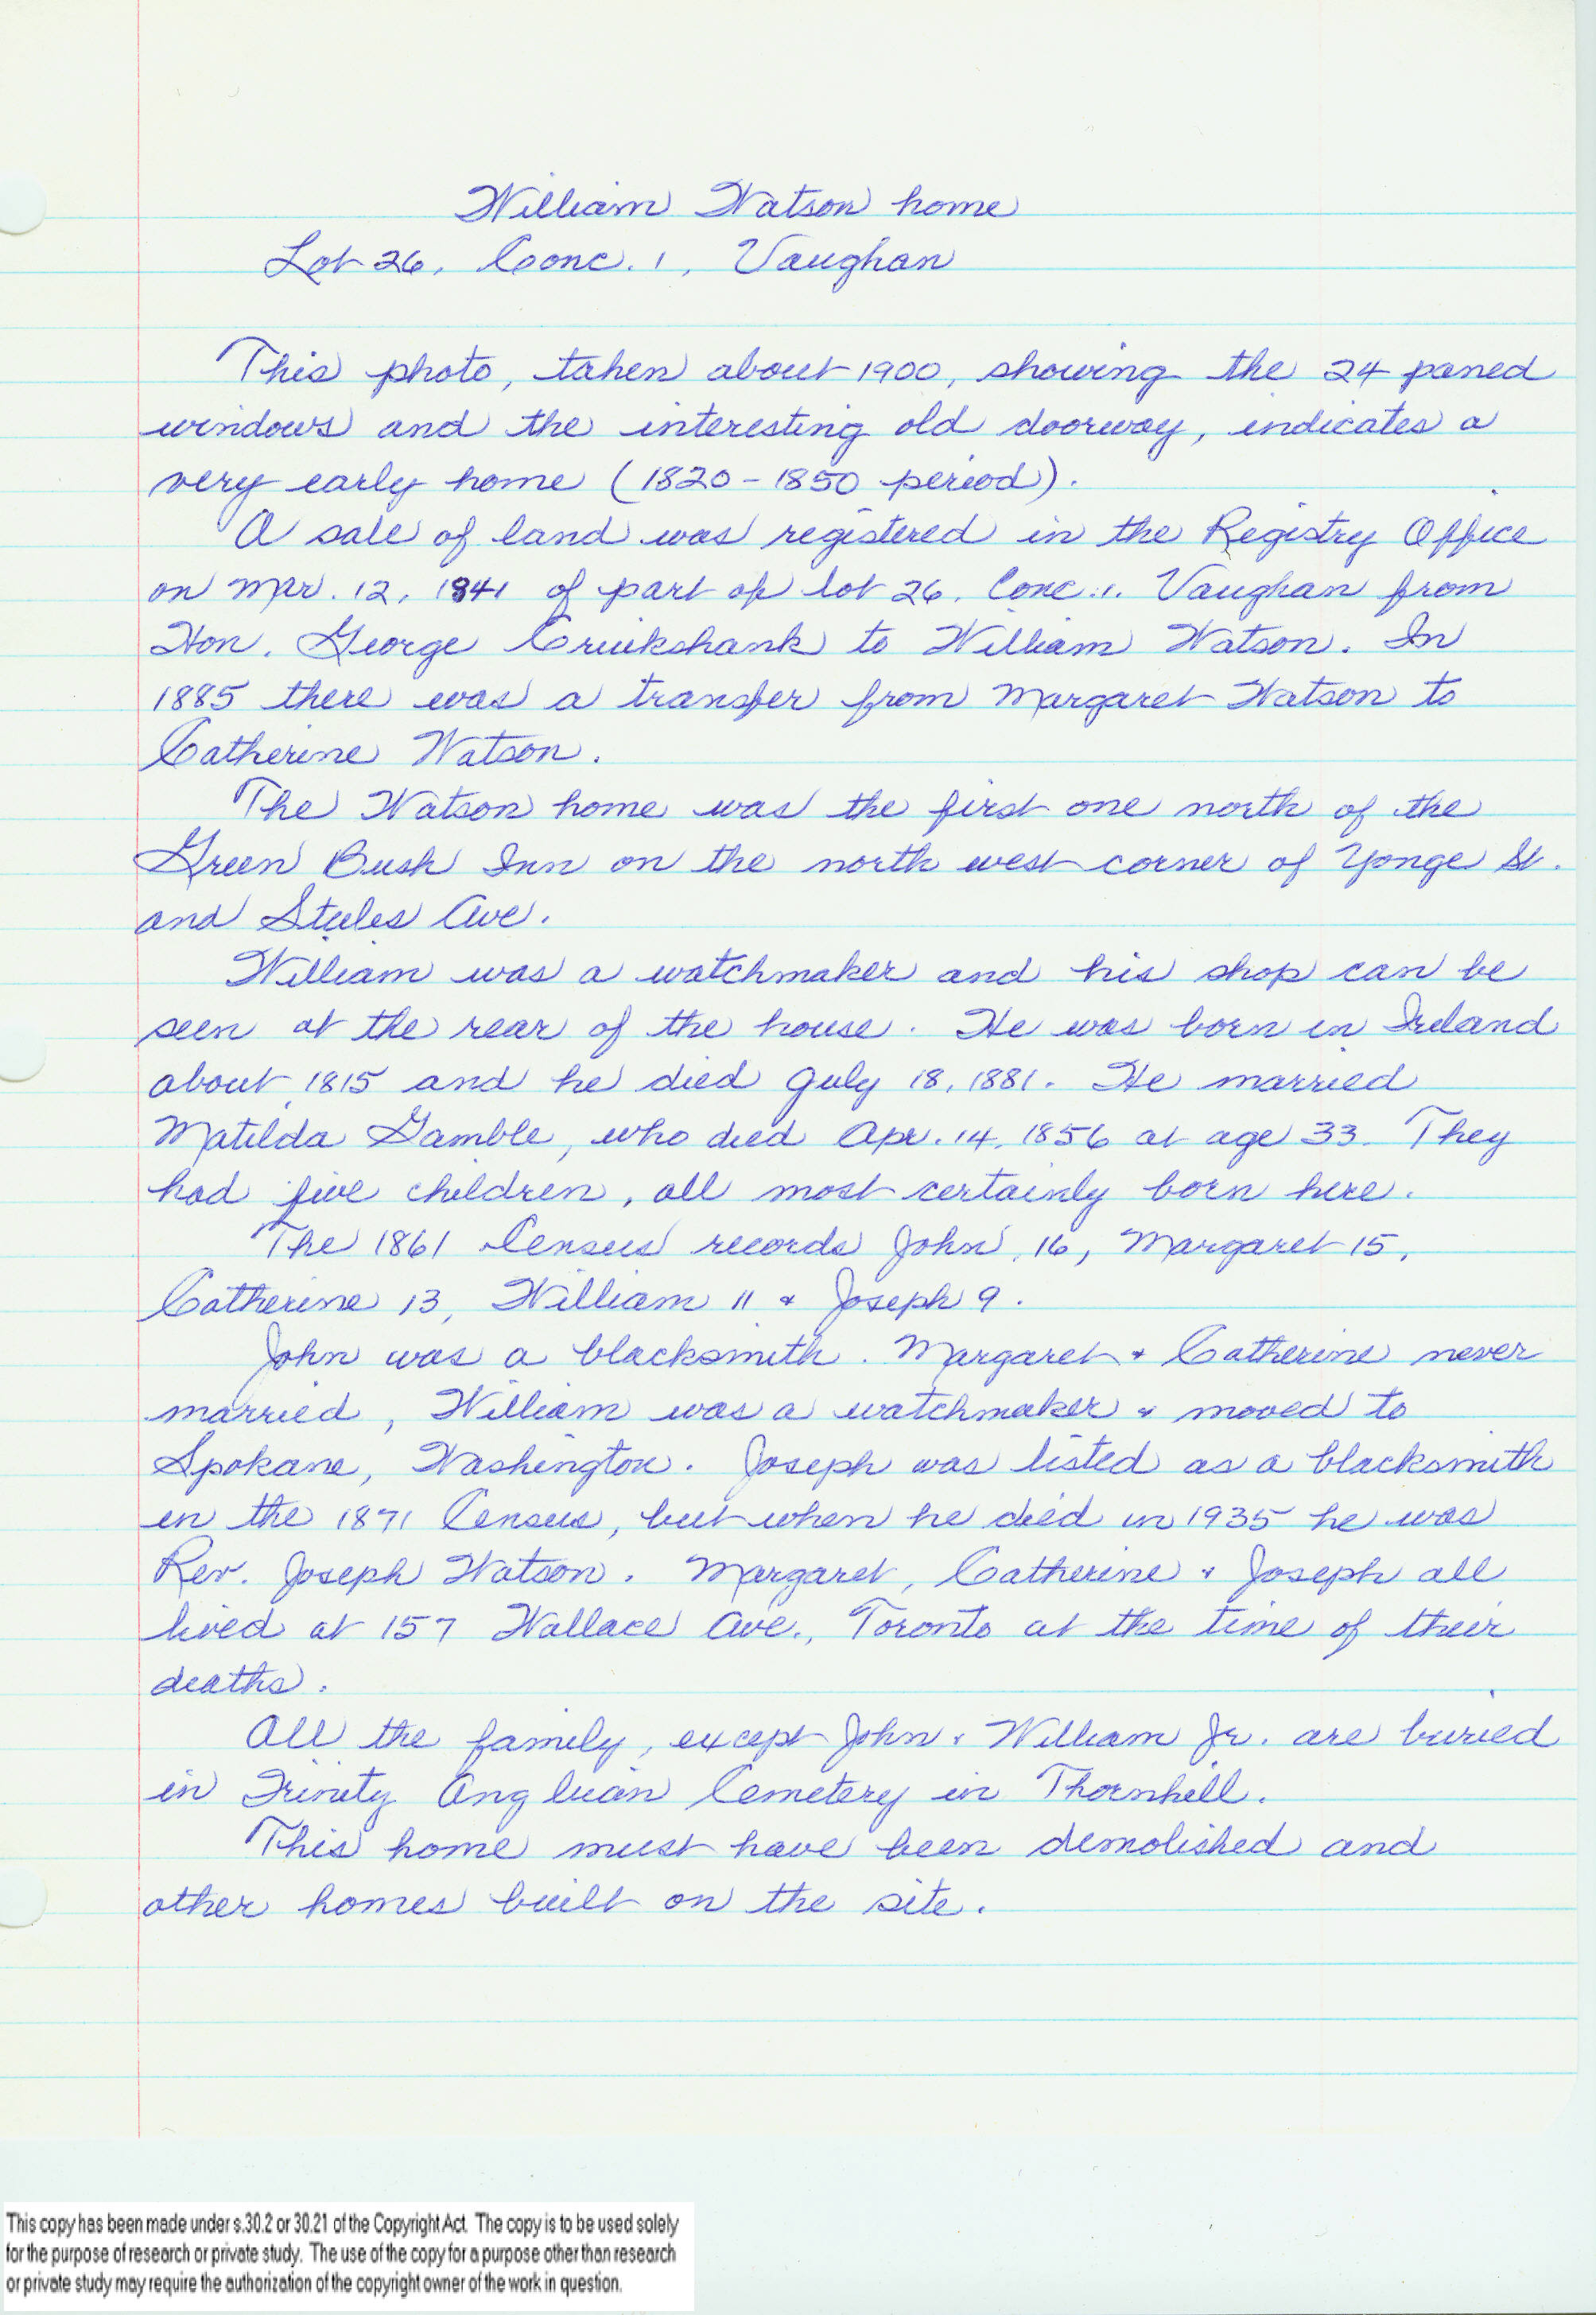 William Watson home
Lot 26, Conc. 1, Vaughan
This photo, taken about 1900, showing the 24 paned
windows and the interesting old doorway, indicates a
very early home (1820-1850 period).
A sale of land was registered in the Registry Office
on Mar. 12, 1841 of part of lot 26, Conc. 1. Vaughan from
Hon. George Cruikshank to William Watson. In
1885 there was a transfer from Margaret Watson to
Catherine Watson.
The Watson home was the first one north of the
Green Bush Inn on the north west corner of Yonge St.
and Steeles Ave.
William was a watchmaker and his shop can be
seen at the rear of the house. He was born in Ireland
about 1815 and he died July 18, 1881. He married
Matilda Gamble, who died Apr. 14, 1856 at age 33. They
had five children, all most certainly born here.
The 1861 Census records John, 16, Margaret 15,
Catherine 13, William 11 & Joseph 9.
John was a blacksmith. Margaret & Catherine never
married, William was a watchmaker & moved to
Spokane, Washington. Joseph was listed as a blacksmith
in the 1871 Census, but when he died in 1935 he was
Rev. Joseph Watson. Margaret, Catherine & Joseph all
lived at 157 Wallace Ave., Toronto at the time of their
deaths.
All the family, except John & William Jr. are buried
in Trinity Anglican Cemetery in Thornhill.
This home must have been demolished and
other homes built on the site.
This copy has been made under s.30.2 or 30.21 of the Copyright Act. The copy is to be used solely
for the purpose of research or private study. The use of the copy for a purpose other than research
or private study may require the authorization of the copyright owner of the work in question.